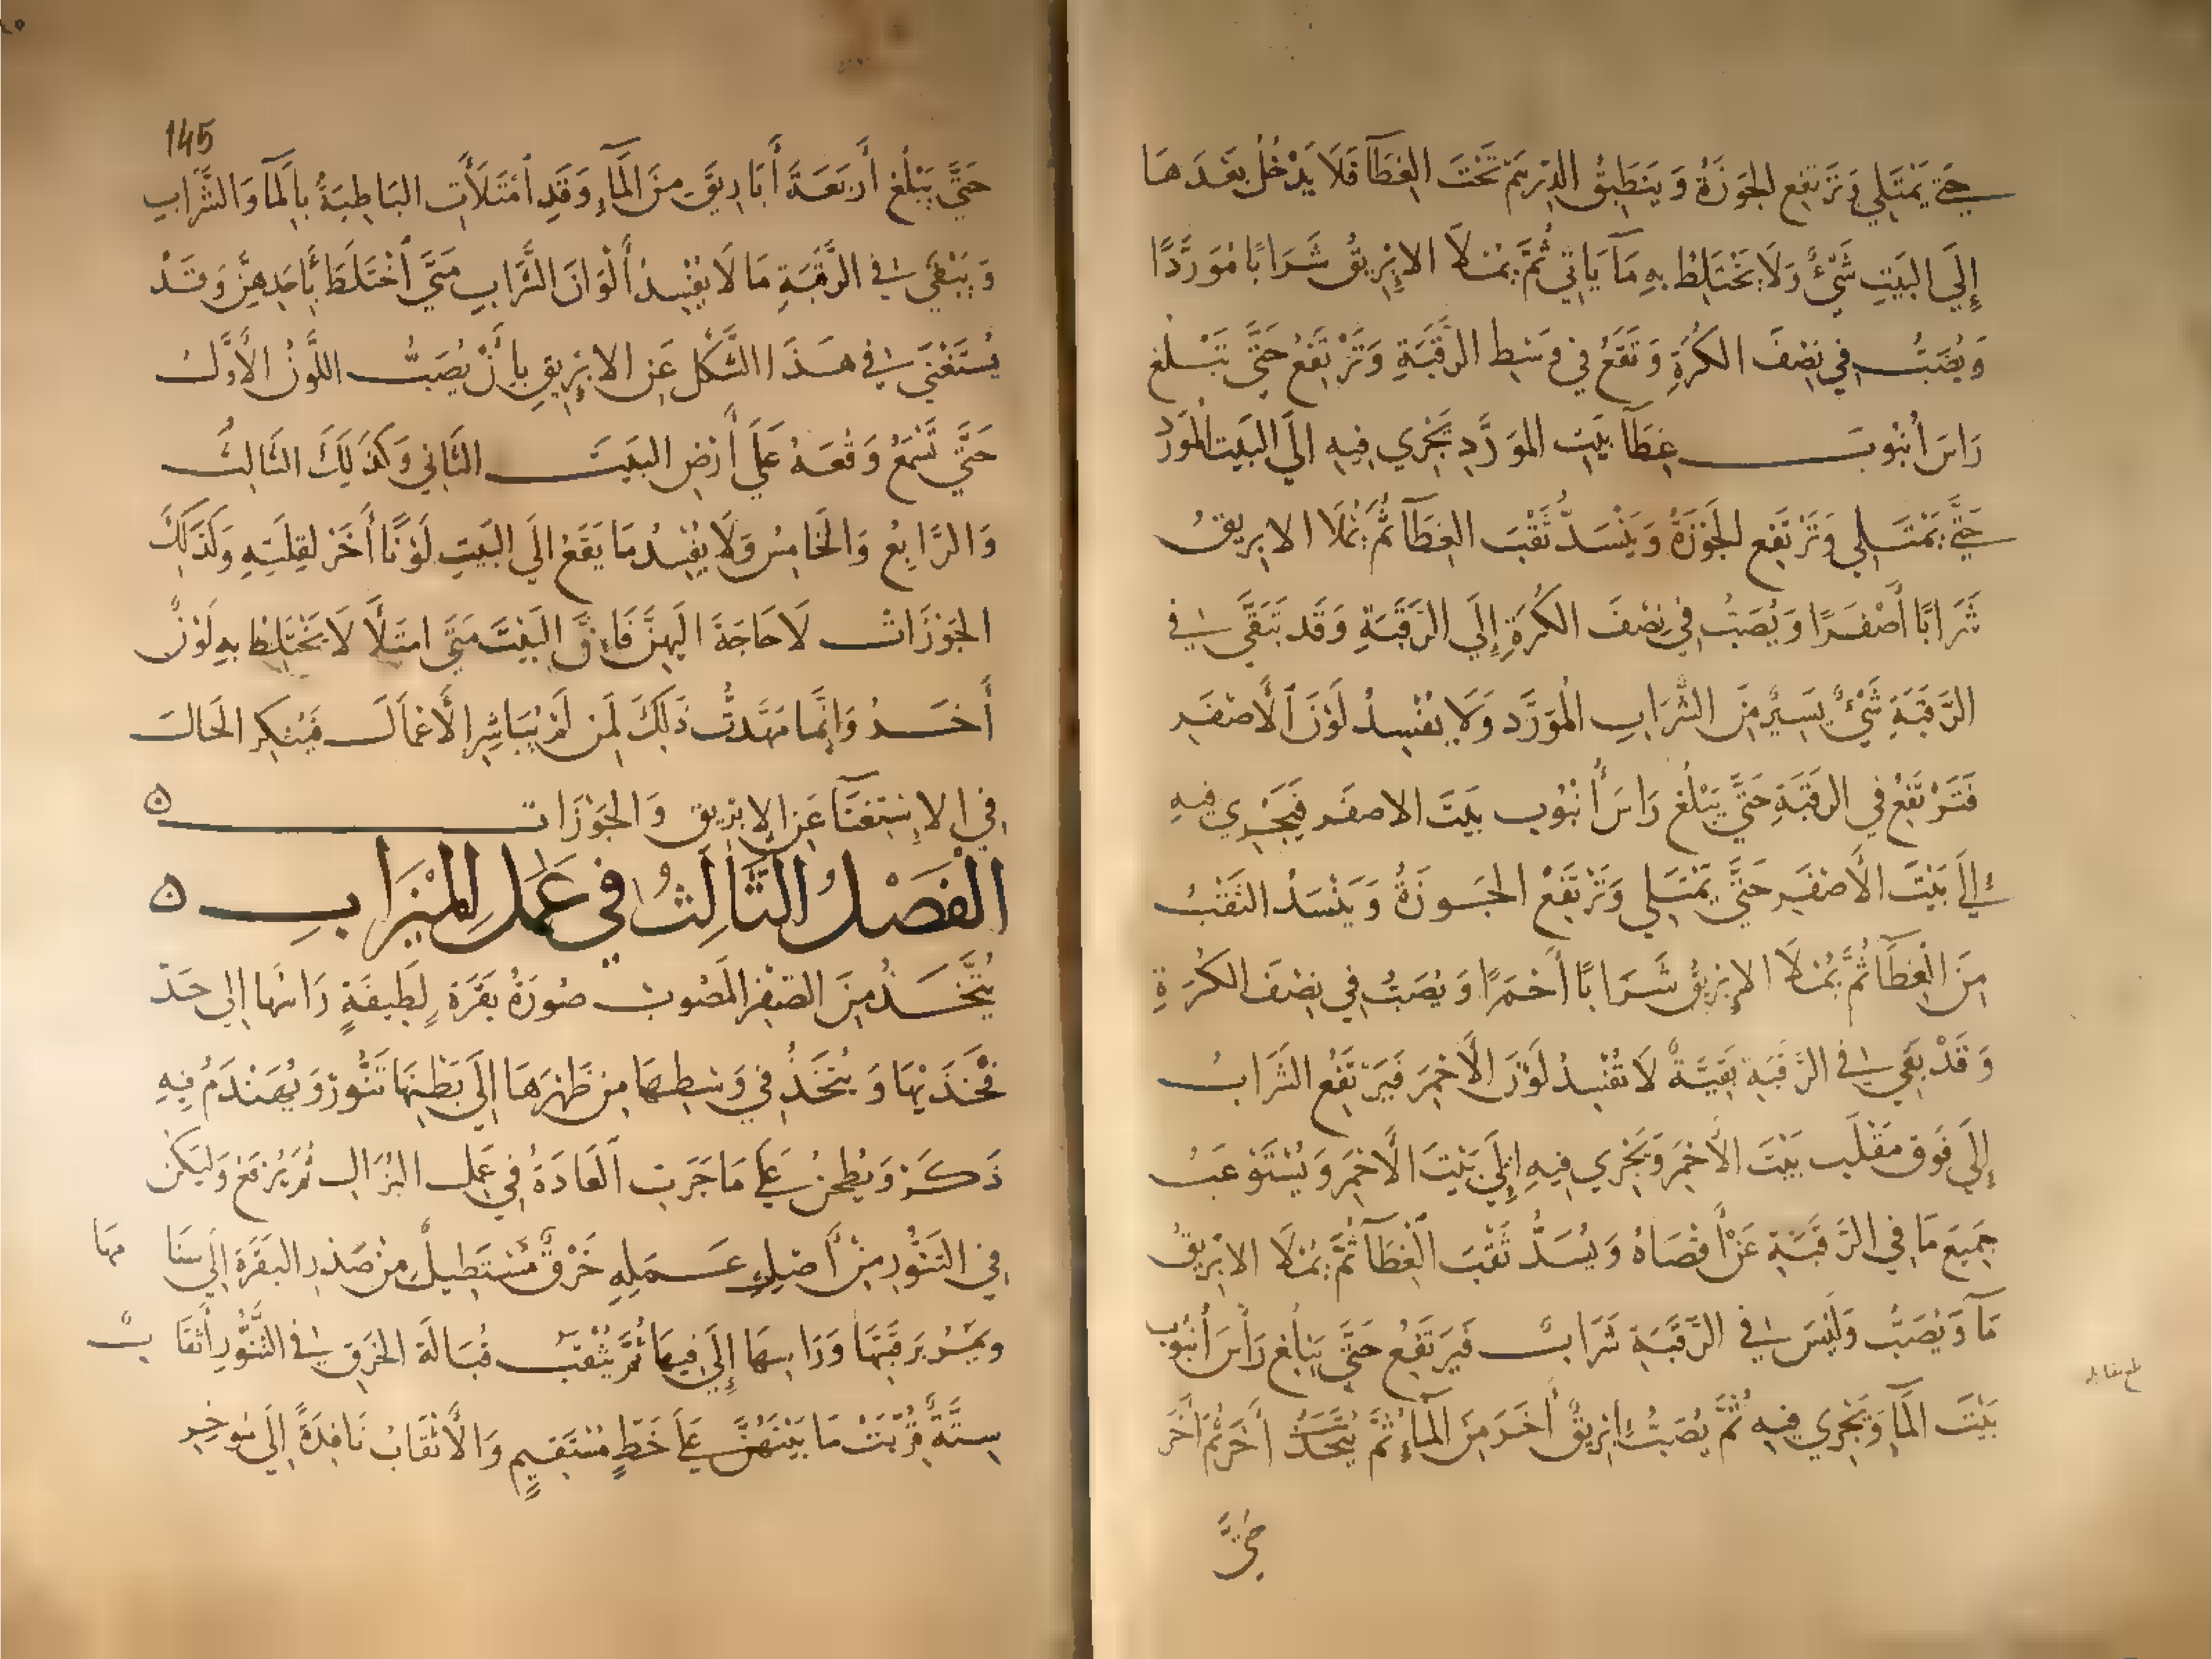 حَتَّى يَمْتَلِي وَتَرْتَفِع الجَوْزَةُ وَيَنطَبِقُ الدِّرْهَمُ تَحْتَ الغِطَآ فَلَا يَدْخُلُ بَعْدَهَا
إِلَى البَيْتِ شَيْءٌ وَلَا يَخْتَلِطُ بِهِ مَا يَاتِي ثُمَّ يُمْلَا الإِبْرِيقُ شَرَابًا مُوَرَّدًا
وَيُصَبُّ فِي نِصْفِ الكُرَةِ وَتَقَعُ فِي وَسَطِ الرَّقَبَةِ وَتَرْتَفِعُ حَتَّى تَبْلُغ
رَاسَ أُنْبُوبِ غِطَآ بَيْتِ المُوَرَّدِ يَجْرِي فِيهِ الَى البَيْتِ المُوَرَّد
حَتَّى يَمْتَلِي وَتَرْتَفِع الجَوْزَةُ وَيَنْسَدُّ ثَقْبَ الغِطَآ ثُمَّ يُمْلَا الابرِيقُ
شَرَابًا أَصْفَرًا وَيُصَبُّ فِي نِصْفَ الكُرَةِ إِلَى الرَّقَبَةِ وَقَد تَبَقَّى فِي
الرَّقَبَةِ شَيْءٌ يَسِيرٌ مِنَ الشَّرَابِ المُوَرَّد وَلَا يُفْسِدُ لَوْنَ الأَصْفَرِ
فَتَرْتَفِعُ فِي الرَّقَبَةِ حَتَّى يَبْلُغ رَاسَ أُنْبُوب بَيْتَ الاصفَر فَيَجْرِي فِيهِ
إِلَى بَيْتَ الأَصْفَرِ حَتَّى يَمْتَلِي وَتَرْتَفِعْ الجَوزَةُ وَيَنْسَدُّ الثَقْبُ
مِنَ الغِطَآ ثُمَّ يُمْلَا الإِبْرِيقُ شَرَابًا أَحْمَرًا وَيُصَبُّ فِي نِصْفَ الكُرَةِ
وَقَدْ بَقِيَ فِي الرَّقَبَةِ بَقِيَّةٌ لَا تُفْسِدُ لَوْنَ الأَحْمَرِ فَيَرْتَفِعُ الشَّرَابُ
إِلَى فَوْق مَقْلَب بَيْتَ الأَحْمَرِ وَيَجْرِي فِيهِ إِلَى بَيْتَ الأَحْمَرِ وَيُسْتَوْعَبُ
جَمِيعَ مَا فِي الرَّقَبَةِ عَنْ أَقْصَاهُ وَيُسَدُّ ثَقْبَ الغِطَآ ثُمَّ يُمْلَا الابْرِيقُ
مَآ وَيُصَبُّ وَلَيْسَ فِي الرَّقَبَةِ شَرَابٌ فَيَرتَفِعُ حَتَّى يَبلُغ رَأْسَ أُنْبُوب
بَيْتَ المَآءِ وَيَجْرِي فِيهِ ثُمَّ يُصَبُّ إِبْرِيقٌ أَخَرَ مِنَ المَآءِ ثُمَّ يُتَّخَذُ أَخَر ثُمَّ أَخَر
حَتَّى
145
حَتَّى يَبْلُغ أَرْبَعَةَ أَبَارِيقَ مِنَ المَآءِ وَقَدِ امْتَلَأَتِ البَاطِيَةُ بِالمَآ وَالشَّرَابِ
وَيَبْقَى فِي الرَّقَبَةِ مَا لَا يُفْسِدُ أَلْوَانَ الشَّرَابِ مَتَى أَخْتَلَطَ بِأَحَدِهِنَّ وَقَدْ
يُسْتَغْنَى فِي هَذَا الشَّكْلِ عَنِ الابْرِيقِ بِأَنْ يُصَبَّ اللَّوْنُ الأَوَّلُ
حَتَّى تَسْمَعُ وَقْعَهُ عَلَى أَرْضِ البَيْتَ الثَّانِي وَكَذَلِكَ الثَّالِثُ
وَالرَّابِعُ وَالخَامِسُ وَلَا يُفْسِدُ مَا يَقَعُ الَى البَيْتِ لَوْنًا أَخَرَ لِقِلَّتِهِ وَكَذَلِكَ
الجَوْزَاتُ لَا حَاجَةَ الَيْهِنَّ فَإِنَّ البَيْتَ مَتَى امتَلَأَ لَا يَخْتَلِطُ بِهِ لَوْنٌ
أَخَرُ وَإِنَّمَا مَهَّدتُ ذَلِكَ لِمَن لَمْ يُبَاشِرِ الأَعْمَالَ فَيُنكِرِ الحَالَ
فِي الإِسْتِغْنَآ عَنِ الإِبْرِيقِ وَالجَوْزَاتِ ٥
الفَصْلُ الثَّالِثُ فِي عَمَلِ المِيْزَابِ ٥
يُتَّخَذُ مِنَ الصُفْرِ المَصْبُوبِ صُورَةُ بَقَرَةٍ لَطِيفَةٍ رَاسُهَا إِلَى حَدْ
فَخْذَيْهَا وَيُتَّخَذُ فِي وَسْطِهَا مِن ظَهْرِهَا إِلَى بَطْنِهَا تَنُّورٌ وَيُهَنْدَمُ فِيهِ
ذَكَرٌ وَيُطحَنُ عَلَى مَا جَرَتِ العَادَةُ فِي عَمَلِ البُزَالِ ثُمَّ يُرْفَعُ وَلْيَكُنْ
فِي التَنُّورِ مِنْ أَصْلِ عَمَلِهِ خَرْقٌ مُسْتَطِيلٌ مِنْ صَدْرِ البَقَرَةِ إِلَى سَنَامِهَا
وَيَمُرُّ بِرَقَبَتِهَا وَرَاسِهَا إِلَى فِيهَا ثُمَّ يُثْقَبُ قُبَالَةَ الخَرقِ فِي التَّنُّورِ أَثْقَابٌ
سِتَّةٌ قُرِّبَتْ مَا بَيْنَهُنَّ عَلَى خَطٍّ مُسْتَقِيمٍ وَالأَثْقَابُ نَافِذَةٌ إِلَى مُوخِرِ